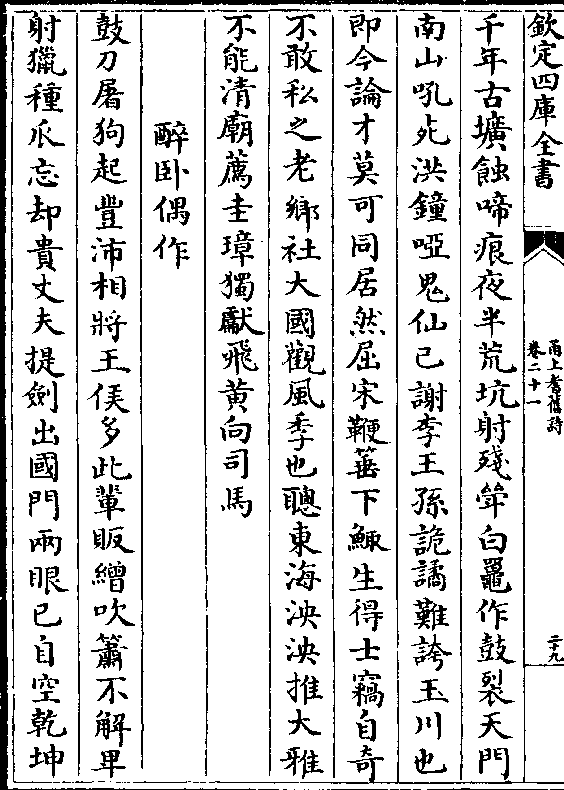 欽定四庫全書
甬上耆舊詩
卷二十一
二十九
千年古壙蝕啼痕夜半荒坑射殘犖白鼉作鼓裂天門
南山吼死洪鐘啞鬼仙已謝李王孫詭譎難誇玉川也
即今論才莫可同居然屈宋鞭箠下鯫生得士竊自奇
不敢私之老鄉社大國觀風季也聰東海泱泱推大雅
不能清廟薦圭璋獨獻飛黄向司馬
醉卧偶作
鼓刀屠狗起豐沛相將王侯多此輩販繒吹簫不解畢
射獵種瓜忘却貴丈夫提劍出國門兩眼已自空乾坤